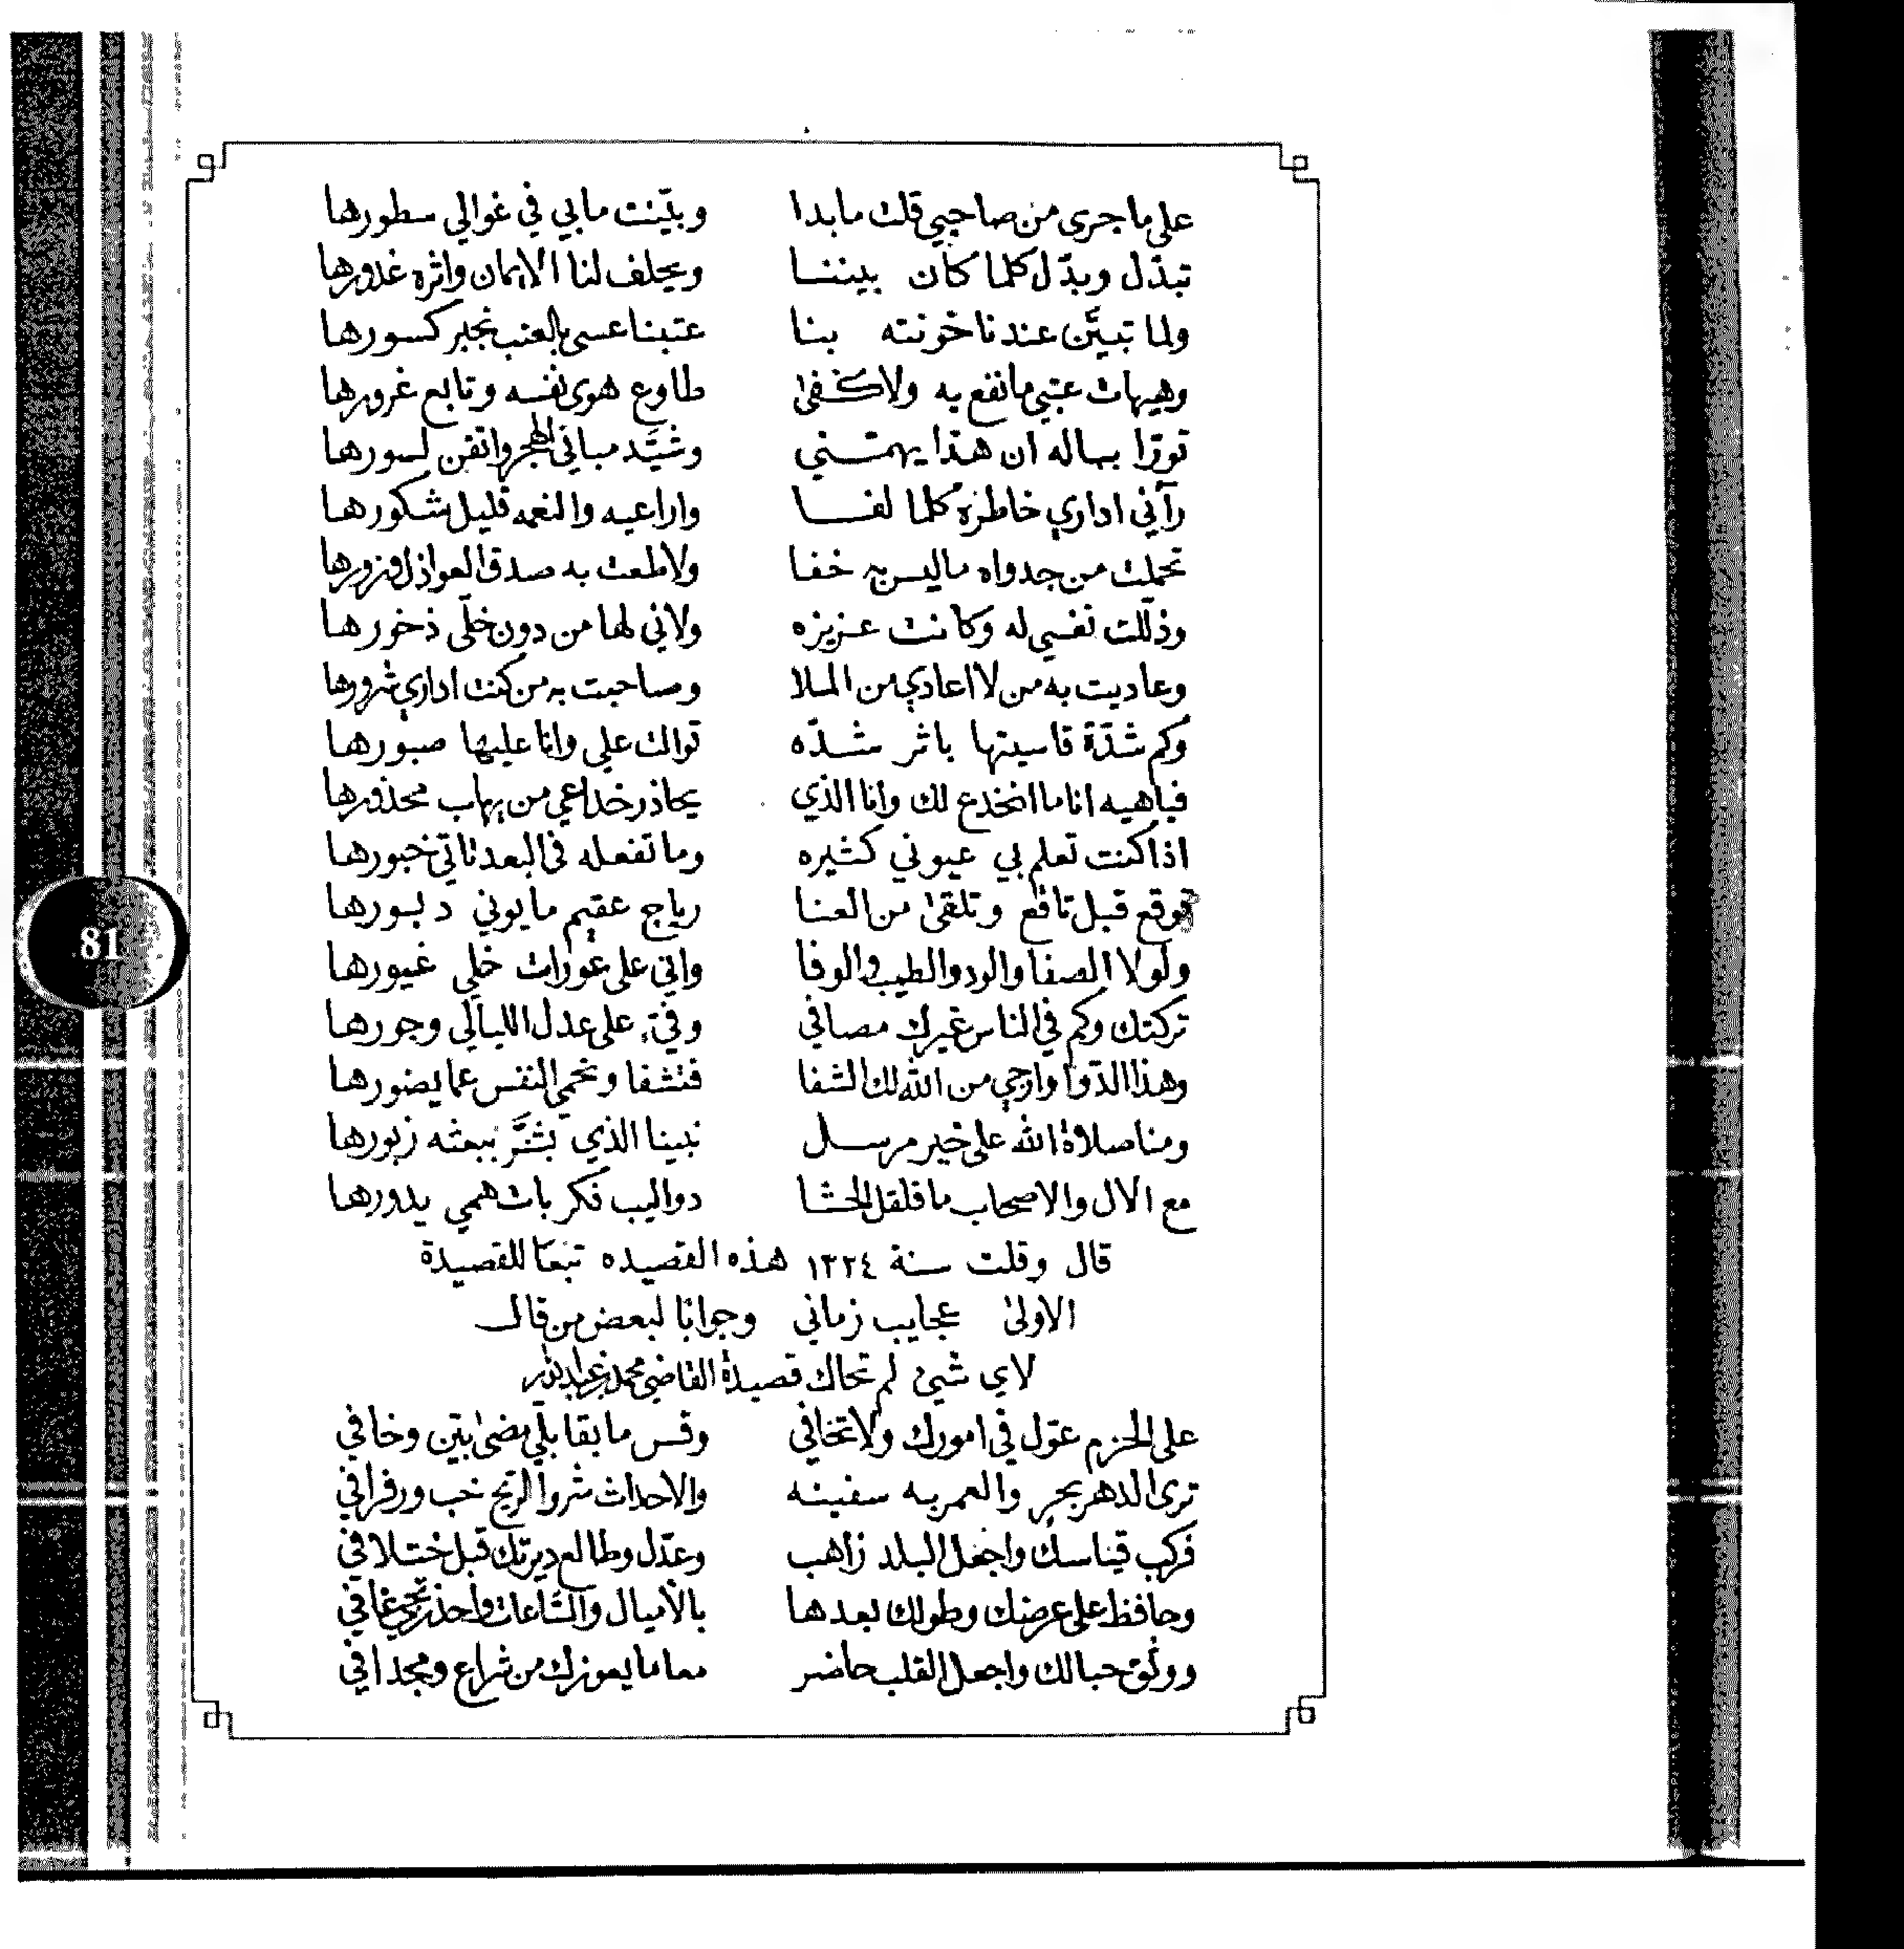 على ماجرى من صاحبي قلت مابدا وبيّنت مابي في غوالي سطورها
تبدّل وبدّل كلما كان بيننا ويحلف لنا الايمان واثره غدورها
ولما تبيَّن عندنا خونته بنا عتبنا عسى بالعتب نجبر كسورها
وهيهات عتبي مانفع به ولا كفى طاوع هوى نفسه وتابع غرورها
تورّا بماله ان هذا يهمتني وشيَّد مباني الهجر واتقن لسورها
رآني اداري خاطره كلما لفا واراعيه والنعمه قليل شكورها
تحملت من جدواه ماليس به خفا ولاطعت به صدق العواذل وزورها
وذلّلت نفسي له وكانت عزيزه ولاني لها من دون خلّي ذخورها
وعاديت به من لا اعادي من الملا وصاحبت به من كنت اداري شرورها
وكم شدّة قاسيتها باثر شدّه توالت علي وانا عليها صبورها
فياهيه انا ما انخدع لك وانا الذي يحاذر خداعي من يهاب محذورها
اذا كنت تعلم بي عيوني كثيره وما تفعله في البعد تاتي خبورها
توقع قبل تاقع وتلقى من العنا رياح عقيم مايوني دبورها
ولولا الصفا والود والطيب والوفا واني على عورات خلي غيورها
تركتك وكم في الناس غيرك مصافي وفيّ على عدل الليالي وجورها
وهذا الدّوا وارجي من الله لك الشفا فتشفا وتحمي النفس عما يضورها
ومنا صلاة الله على خير مرسل نبينا الذي بشَّر ببعثه زبورها
مع الال والاصحاب ما قلقل الحشا دواليب فكر بات همي يدورها
قال وقلت سنة ١٣٢٤ هذه القصيده تبعًا للقصيدة
الاولى عجايب زماني وجوابًا لبعض من قال
لاي شيئ لم تحاك قصيدة القاضي محمد بن عبدالله
على الحزم عوّل في امورك ولاتخافي وقس ما بقا بلّي مضى بيّن وخافي
ترى الدهر بحر والعمر به سفينه والاحداث شروا الريح خب ورفرافي
فركب قياسك واجعل البلد زاهب وعدّل وطالع ديرتك قبل ختلافي
وحافظ على عرضك وطولك بعدها بالاميال والسّاعات واحذر
ووثّق حبالك واجعل القلب حاضر معا ما يعوزك من شراع ومجدافي
81